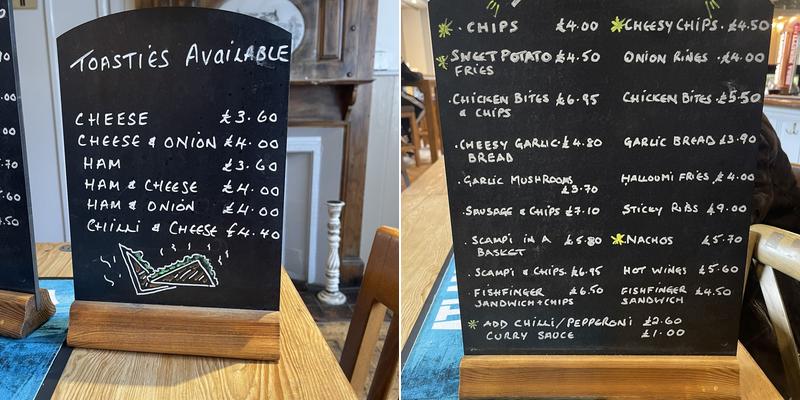 TOASTIES AVAILABLE
CHEESE £3.60
CHEESE & ONION £4.00
HAM £3.60
HAM & CHEESE £4.00
HAM & ONION £4.00
CHILLI & CHEESE £4.40
.00
.00
.70
.60
.50
CHIPS £4.00
SWEET POTATO £4.50
FRIES
CHICKEN BITES £6.95
& CHIPS
CHEESY GARLIC £4.80
BREAD
GARLIC MUSHROOMS
£3.70
SAUSAGE & CHIPS £7.10
SCAMPI IN A £5.80
BASKET
SCAMPI & CHIPS £6.95
FISHFINGER £6.50
SANDWICH + CHIPS
CHEESY CHIPS £4.50
ONION RINGS £4.00
CHICKEN BITES £5.50
GARLIC BREAD £3.90
HALLOUMI FRIES £4.00
STICKY RIBS £9.00
NACHOS £5.70
HOT WINGS £5.60
FISHFINGER £4.50
SANDWICH
ADD CHILLI/PEPPERONI £2.60
CURRY SAUCE £1.00